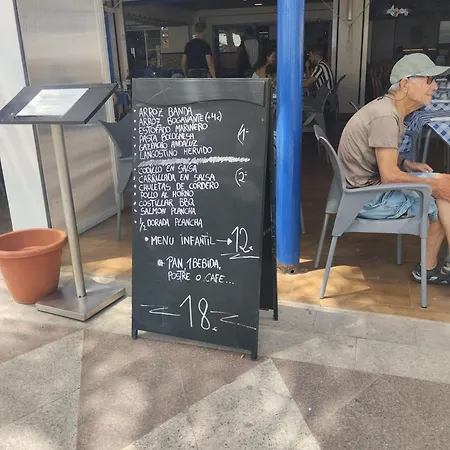 ARROZ BANDA
ARROZ BOGAVANTE (+4€)
ESTOFADO MARINERO
PASTA BOLOGNESA
GAZPACHO ANDALUZ
LANGOSTINO HERVIDO
1º
CODILLO EN SALSA
CARRILLADA EN SALSA
CHULETAS DE CORDERO
POLLO AL HORNO
COSTILLAR BBQ
SALMON PLANCHA
½ DORADA PLANCHA
2º
* MENU INFANTIL → 12
* PAN, 1 BEBIDA,
POSTRE O CAFE...
18